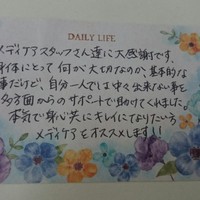 DAILY LIFE
メディケアスタッフさん達に大感謝です。
身体にとって何が大切なのか、基本的な
事だけど、自分一人では中々出来ない事を
多方面からのサポートで助けてくれました。
本気で身心共にキレイになりたい方
メディケアをオススメします!!